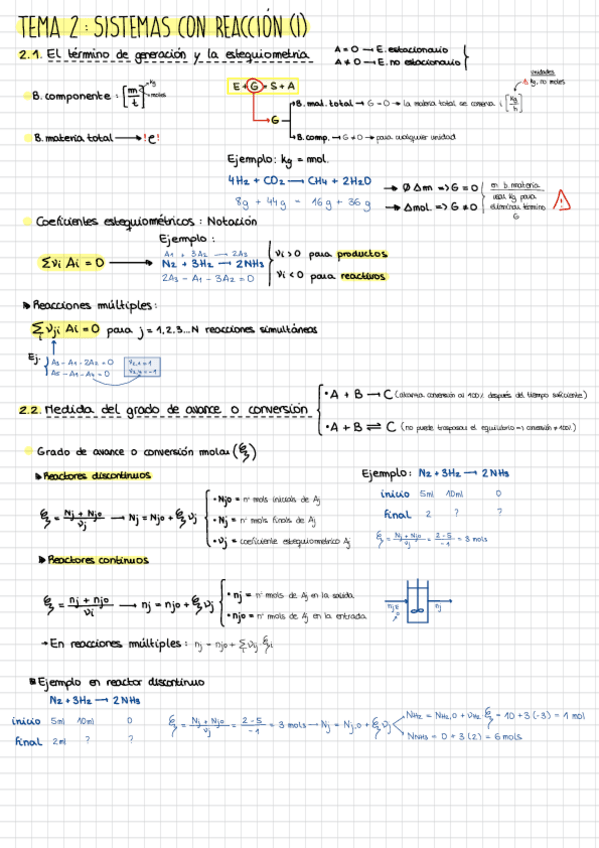 TEMA 2: SISTEMAS CON REACCIÓN (1)
2.1. El término de generación y la estequiometria
A = 0 → E. estacionario
A ≠ 0 → E. no estacionario
B. componente: [m/t] → kg → moles
E + G = S + A
unidades
⚠ kg, no moles
B. mal. total → G = 0 → la materia total se conserva ¡ [kg/h]
G
B. comp. → G ≠ 0 → para cualquier unidad
B. materia total → !e!
Ejemplo: kg = mol.
4H2 + CO2 → CH4 + 2H2O
8g + 44g = 16g + 36g
→ Ø Δm => G = 0
→ Δmol. => G ≠ 0
en b. materia
usar kg para
eliminar término
G
Coeficientes estequiométricos: Notación
Ejemplo:
Σνi Ai = 0
A1 + 3A2 → 2A3
N2 + 3H2 → 2NH3
2A3 - A1 - 3A2 = 0
νi > 0 para productos
νi < 0 para reactivos
Reacciones múltiples:
Σ νji Ai = 0 para j = 1,2,3...N reacciones simultáneas
Ej.
A3 - A1 - 2A2 = 0
A5 - A1 - A4 = 0
2.2. Medida del grado de avance o conversión
• A + B → C (alcanza conversión al 100% después del tiempo suficiente)
• A + B ⇌ C (no puede traspasar el equilibrio → conversión ≠ 100%)
Grado de avance o conversión molar (ξ)
Reactores discontinuos
ξ = Nj + Njo / νj → Nj = Njo + ξ νj
• Njo = nº mols iniciales de Aj
• Nj = nº mols finales de Aj
• νj = coeficiente estequiométrico Aj
Ejemplo: N2 + 3H2 → 2NH3
inicio 5ml 10ml 0
final 2 ? ?
ξ = Nj + Njo / νj = 2 - 5 / -1 = 3 mols
Reactores continuos
ξ = nj + njo / νi → nj = njo + ξ νj
• nj = nº mols de Aj en la salida
• njo = nº mols de Aj en la entrada
njo
nj
→ En reacciones múltiples: nj = njo + Σ νij ξi
Ejemplo en reactor discontinuo
N2 + 3H2 → 2NH3
inicio 5ml 10ml 0
final 2ml ? ?
ξ = Nj + Njo / νj = 2 - 5 / -1 = 3 mols → Nj = Nj,0 + ξ νj
NH2 = NH2,0 + νH2 ξ = 10 + 3(-3) = 1 mol
NNH3 = 0 + 3(2) = 6 mols